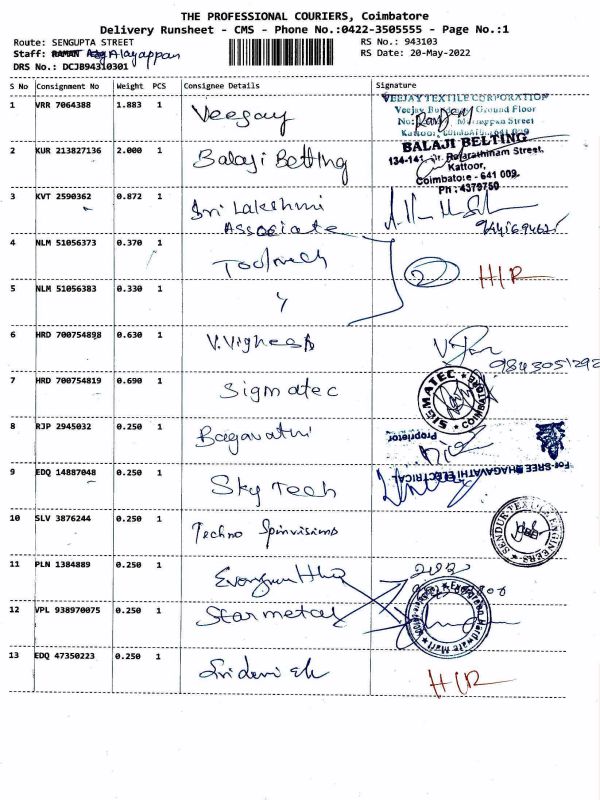 THE PROFESSIONAL COURIERS, Coimbatore
Delivery Runsheet - CMS - Phone No.:0422-3505555 - Page No.:1
Route: SENGUPTA STREET
RS No.: 943103
Staff: RAMAN Alayappan
RS Date: 20-May-2022
DRS No.: DCJB94310301
S No Consignment No Weight PCS Consignee Details Signature
1 VRR 7064388 1.883 1 Veejay
VEEJAY TEXTILE CORPORATION
Ground Floor
Street
2 KUR 213827136 2.000 1 Balaji Belting
BALAJI BELTING
134-141, Dr. Rajarathinam Street,
Kattoor,
Coimbatore - 641 009.
Ph : 4379750
3 KVT 2590362 0.872 1 Sri Lakshmi
Associate
4 NLM 51056373 0.370 1
H/R
5 NLM 51056383 0.330 1 "
6 HRD 700754898 0.630 1 V.Vighesh
9843051292
7 HRD 700754819 0.690 1 Sigmatec
SIGMATEC
8 RJP 2945032 0.250 1 Bagavathi
For SREE BHAGAVATHI ELECTRICAL
Proprietor
9 EDQ 14887048 0.250 1 Sky Tech
10 SLV 3876244 0.250 1 Techno Spinvisions
SENDUR TEXTILE ENGINEERS
11 PLN 1384889 0.250 1
12 VPL 938970075 0.250 1 Star metal
Evergreen Hardware Mart
13 EDQ 47350223 0.250 1 Sridevi
H/R